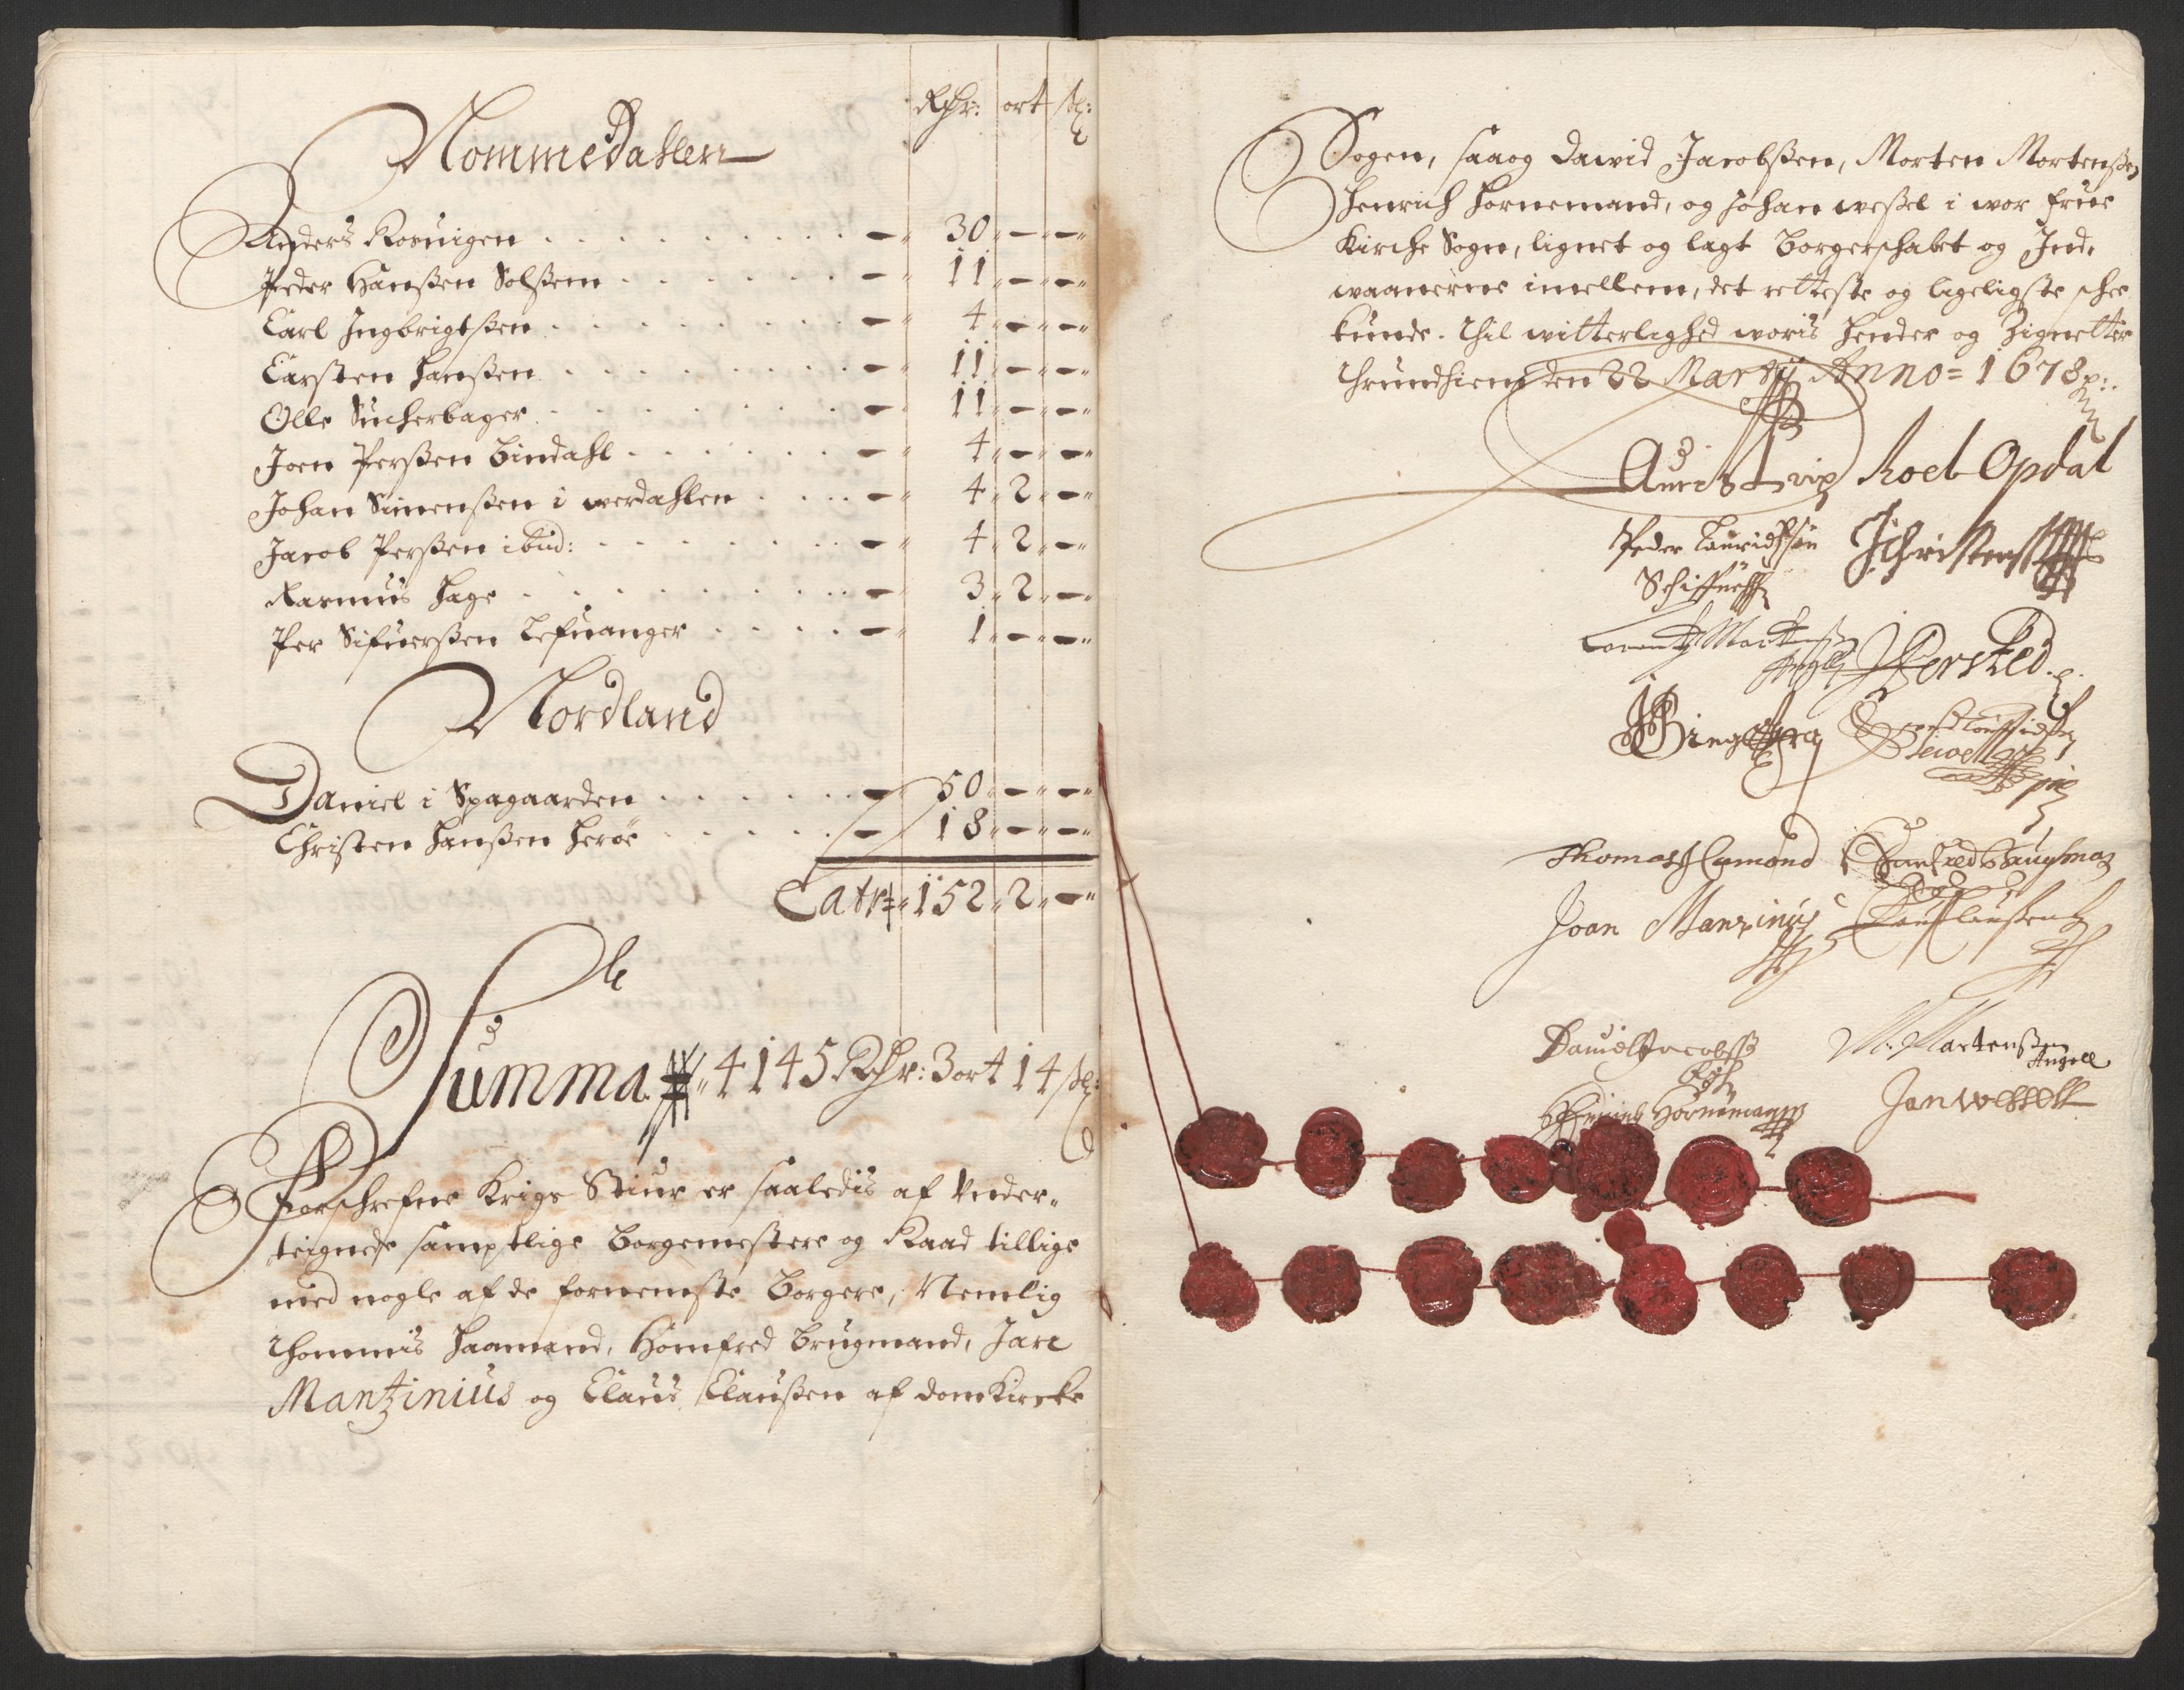 Rdr: ort sk:
Nommedahlen
Anders Rosuigen . . . . . . . . . — 30 — —
Peder Hanßen Solßem . . . . . . . — 11 — —
Carl Ingbrigtßen . . . . . . . . — 4 — —
Carsten Hanßen . . . . . . . . — 11 — —
Olle Sucherbager . . . . . . . . — 11 — —
Joen Perßen Bindahl . . . . . . — 4 — —
Johan Simenßen i werdahlen . . . . — 4 2 —
Jacob Perßen ibid: . . . . . . . — 4 2 —
Rasmus Hage . . . . . . . . — 3 2 —
Per Sifuerßen Lefuanger . . . . — 1 — —
Nordland
Daniel i Spagaarden . . . . . . — 50 — —
Christen Hanßen Herøe . . . . . — 18 — —
Latr= 152 2 —
Summa 4145 Rdr: 3 ort 14 sk:
Forschrefne Krigs Stiur er saaledis af Under-
teignede samptlige Borgemestere og Raad tillige
med nogle af de fornemste Borgere, Nemlig
Thommis Haamand, Homfred Brugmand, Jare
Mantzinius og Claus Claußen af Domkircke
Sogen, saaog Dawid Jacobßen, Morten Mortenßen
Henrich Hornemand, og Johan weßel i wor frue
Kirche Sogn, lignet og lagt Borgerschabet og Ind-
waanerne imellem, det retteste og ligeligste schee
kunde. Thil witterlighed woris Hender og Zignetter
Thrundhiem den 22 Martij Anno = 1678 p:.
Roel Opdal
Peder Lauridsøn
Schiffuesh
JChristens
Lorentz Mortenß
Angell
Persted
Thomas Hamond
Homfred Brugman
Joan Manzinius
Claus Claußen
Dauid Jacobß
M. Martenßen
Angell
Hendrich Hornemann
Jan wessell